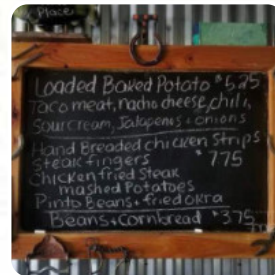 Place
Loaded Baked Potato $5.25
Taco meat, nacho cheese, chili,
Sour cream, Jalapenos + onions
Hand Breaded chicken Strips
Steak fingers $7.75
Chicken fried Steak
mashed Potatoes
Pinto Beans + fried okra
Beans + Cornbread $3.75